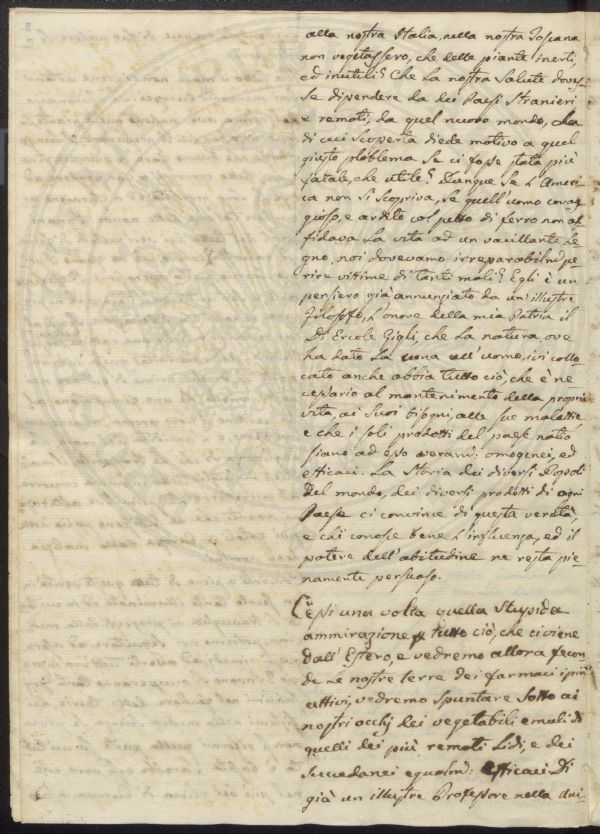 alla nostra Italia, nella nostra Toscana
non vegetassero, che delle piante inerti,
ed inutili? Che la nostra Salute doves-
se dipendere da dei Paesi Stranieri
e remoti, da quel nuovo mondo, la
di cui scoperta diede motivo a quel
giusto ploblema se ci fosse stata più
fatale, che utile? Dunque se l'Ameri-
ca non si scopriva, se quell'uomo corag-
gioso, e ardito col petto di ferro non af-
fidava la vita ad un vacillante le
gno, noi dovevamo irreparabilm: pe-
rire vittime di tanti mali? Egli è un
pensiero già annunziato da un illustre
Filosofo, l'onore della mia Patria il
D: Ercole Gigli, che la natura, ove
ha dato la cuna all'uomo, ivi collo-
cato anche abbia tutto ciò, che è ne
cessario al mantenimento della propria
vita, ai suoi bisogni, alle sue malattie
e che i soli prodotti del paese natio
siano ad esso veram: omogenei, ed
efficaci: La Storia dei diversi Popoli
del mondo, dei diversi prodotti di ogni
Paese ci convince di questa verità,
e chi conosce bene l'influenza, ed il
potere dell'abitudine ne resta pie-
namente persuaso.
Cessi una volta quella Stupida
ammirazione p tutto ciò, che ci viene
dall'Estero, e vedremo allora fecon
de le nostre terre dei farmaci i più
attivi, vedremo spuntare sotto ai
nostri occhj dei vegetabili emuli di
quelli dei più remoti Lidi, e dei
Succedanei egualm: efficaci. Di
già un illustre Professore nella Uni-